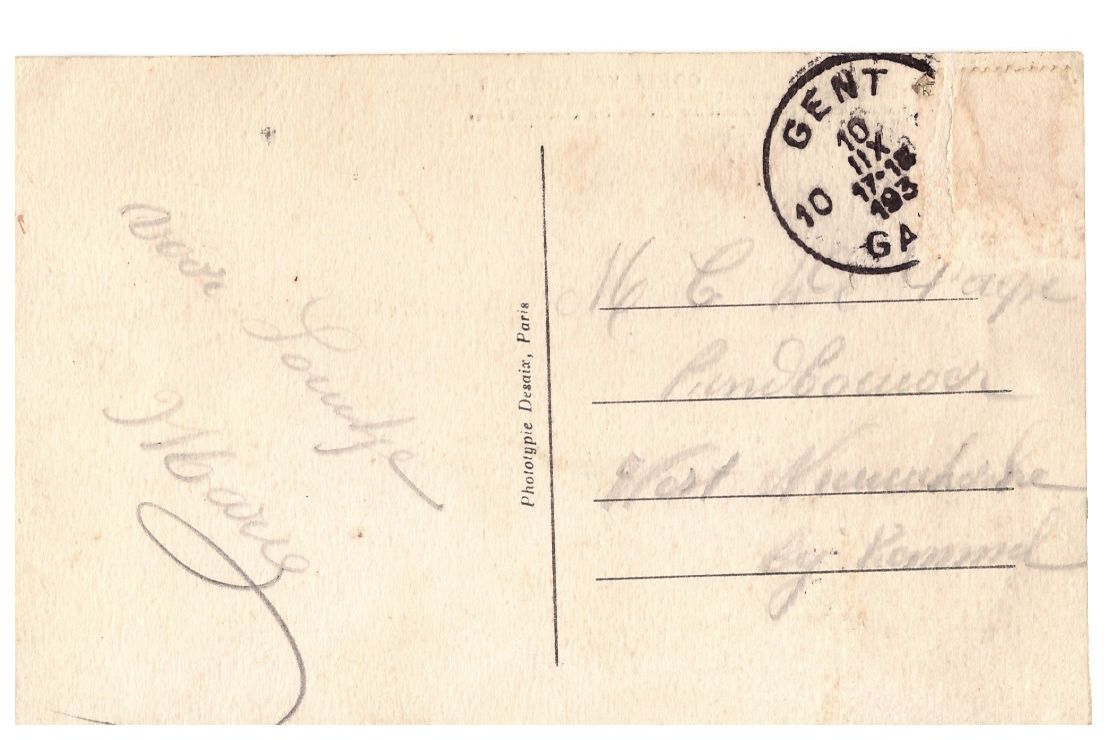 GENT
10
IIX
17-18
193
10
GA
voor
Marie
Phototypie Desaix, Paris
M C
Landbouwer
West Nieuwkerke
bij Kemmel